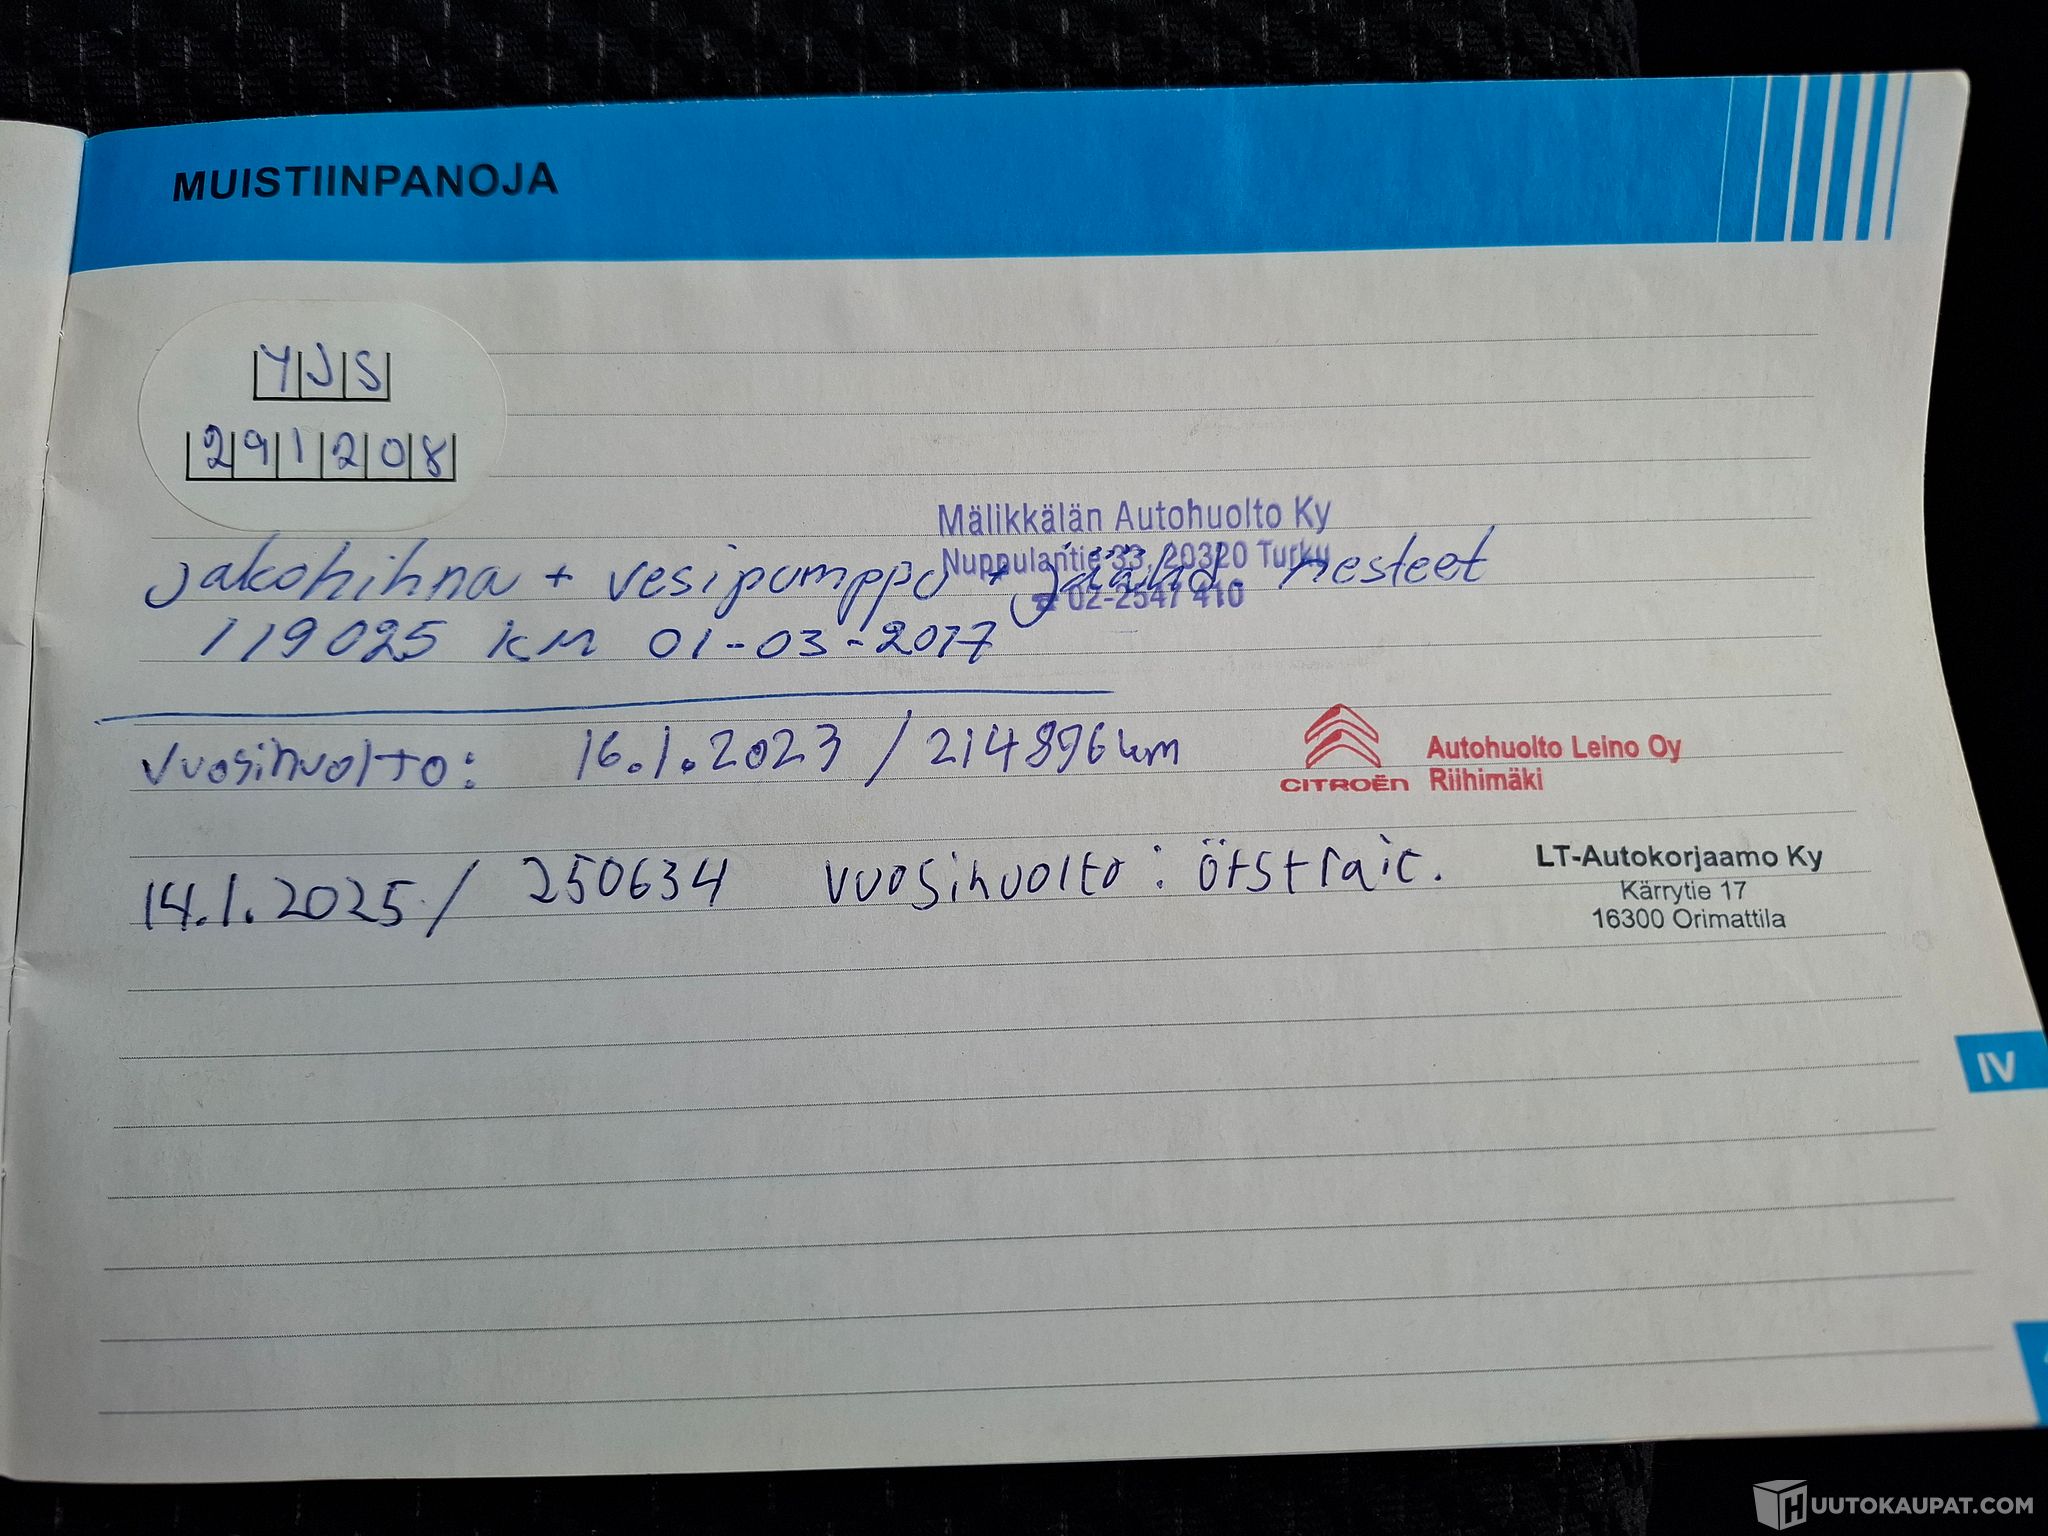 MUISTIINPANOJA
YJS
291208
Mälikkälän Autohuolto Ky
Nuppulantie 33, 20320 Turku
☎ 02-2547 410
jakohihna + vesipumppu + jäähd. nesteet
119025 km 01-03-2017
vuosihuolto: 16.1.2023 / 214896km
CITROËN
Autohuolto Leino Oy
Riihimäki
14.1.2025 / 250634 vuosihuolto:
LT-Autokorjaamo Ky
Kärrytie 17
16300 Orimattila
IV
HUUTOKAUPAT.COM